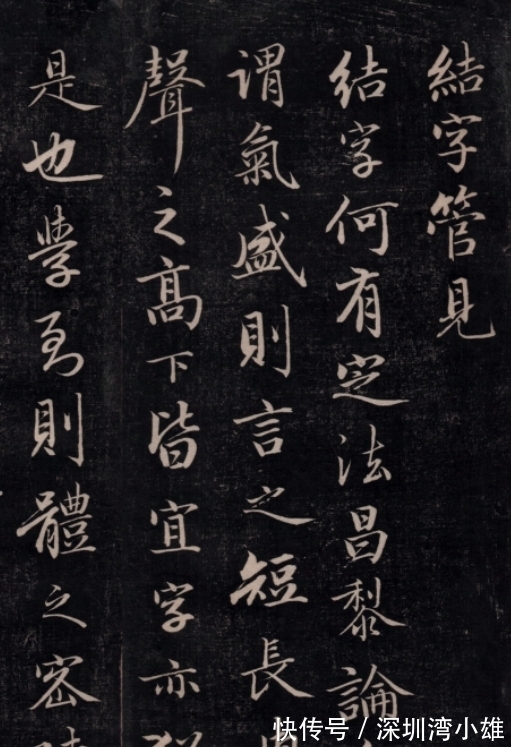 結字管見
結字何有定法昌黎論
謂氣盛則言之短長
聲之高下皆宜字亦
是也學到則體之密
快传号 / 深圳湾小雄